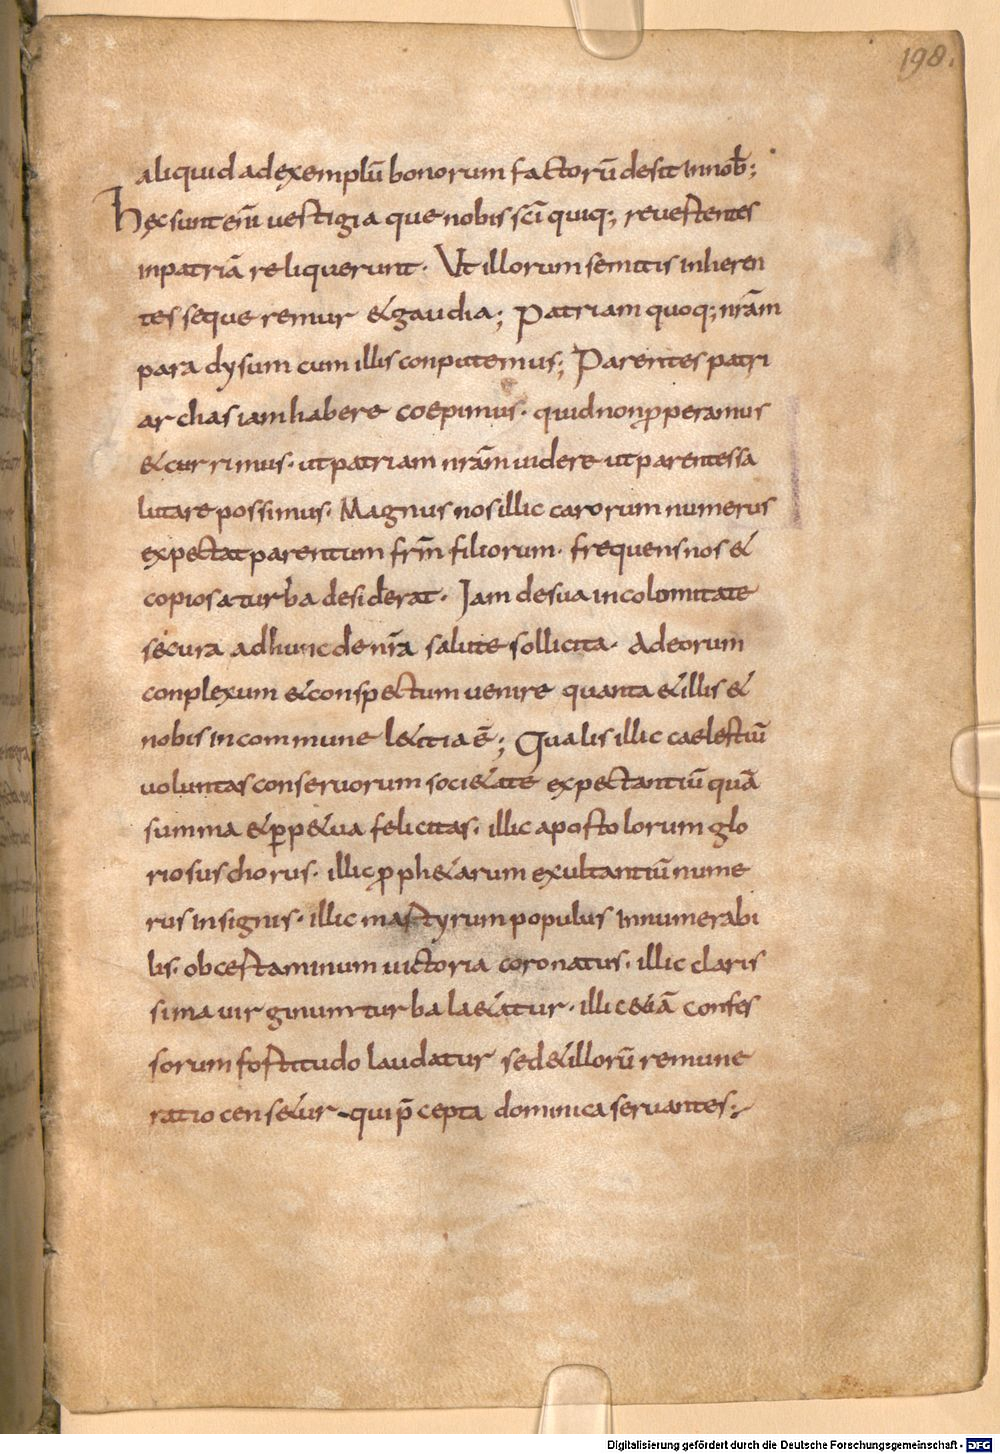 198.
aliquid ad exemplū bonorum factorū desit in nob̄;
hęc sunt enī vestigia que nobis sc̄i quiq; revestentes
in patriā reliquerunt· Ut illorum semitis inheren
tes sequeremur & gaudia; Patriam quoq; nrām
paradysum cum illis conputemus; Parentes patri
archas iam habere coepimus· quid non ꝓperamus
& currimus· ut patriam nrām videre ut parentes sa
lutare possimus· Magnus nos illic carorum numerus
expectat parentum frm̄ filiorum· frequens nos &
copiosa turba desiderat· Iam de sua incolomitate
secura adhunc de nrā salute sollicita· Ad eorum
conplexum & conspectum venire quanta & illis &
nobis in commune l&itia ē; Qualis illic caelestiū
voluntas conservorum soci&ate expectantiū quā
summa & ꝑp&ua felicitas· illic apostolorum glo
riosus chorus· illic ꝓph&arum exultantiū nume
rus insignis· illic martyrum populus innumerabi
lis· ob certaminum victoria coronatus· illic claris
sima virginum turba la&atur· illic &iā confes
sorum fortitudo laudatur sed & illorū remune
ratio cens&ur qui p̄cepta dominica servantes;
Digitalisierung gefördert durch die Deutsche Forschungsgemeinschaft - DFG